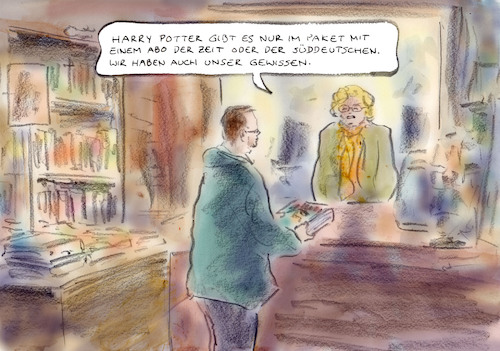 HARRY POTTER GIBT ES NUR IM PAKET MIT
EINEM ABO DER ZEIT ODER DER SÜDDEUTSCHEN.
WIR HABEN AUCH UNSER GEWISSEN.